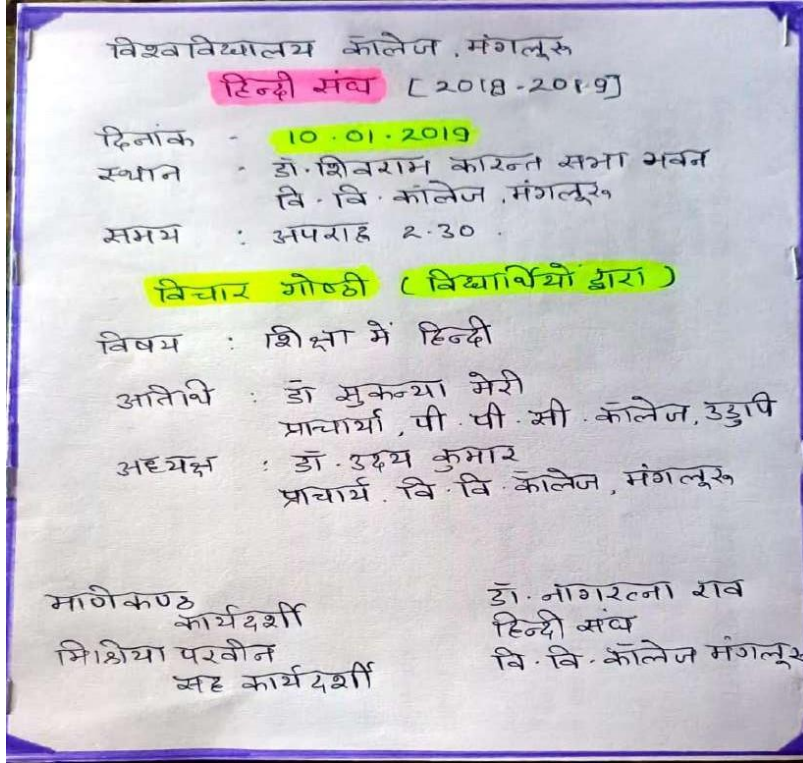 विश्वविद्यालय कॉलेज, मंगलूरू
हिन्दी संघ [2018-2019]
दिनांक - 10.01.2019
स्थान - डॉ. शिवराम कारन्त सभा भवन
वि. वि. कॉलेज, मंगलूरू
समय : अपराह्न 2.30.
विचार गोष्ठी (विद्यार्थियों द्वारा)
विषय : शिक्षा में हिन्दी
अतिथि : डॉ सुकन्या मेरी
प्राचार्या, पी. पी. सी. कॉलेज, उडुपि
अध्यक्ष : डॉ. उदय कुमार
प्राचार्य. वि. वि. कॉलेज, मंगलूरू
मणिकण्ठ
कार्यदर्शी
परवीन
सह कार्यदर्शी
डॉ. नागरत्ना राव
हिन्दी संघ
वि. वि. कॉलेज मंगलूरू